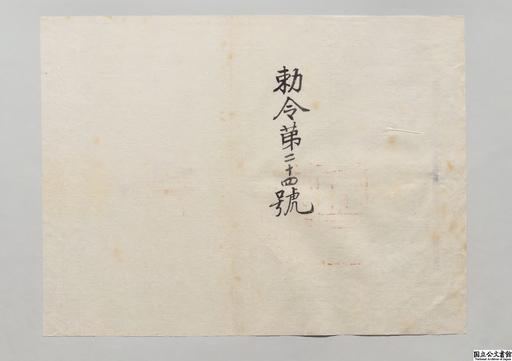 勅令第二十四號
国立公文書館
National Archives of Japan